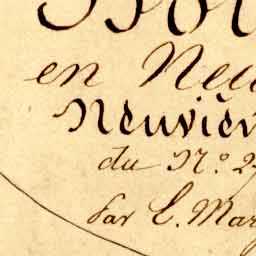 en Neu
Neuvièr
du N.º 2
par L. Mar